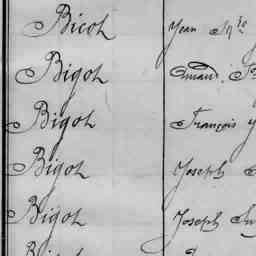 Bicot Jean Mte
Bigot Amand
Bigot François
Bigot Joseph
Bigot Joseph